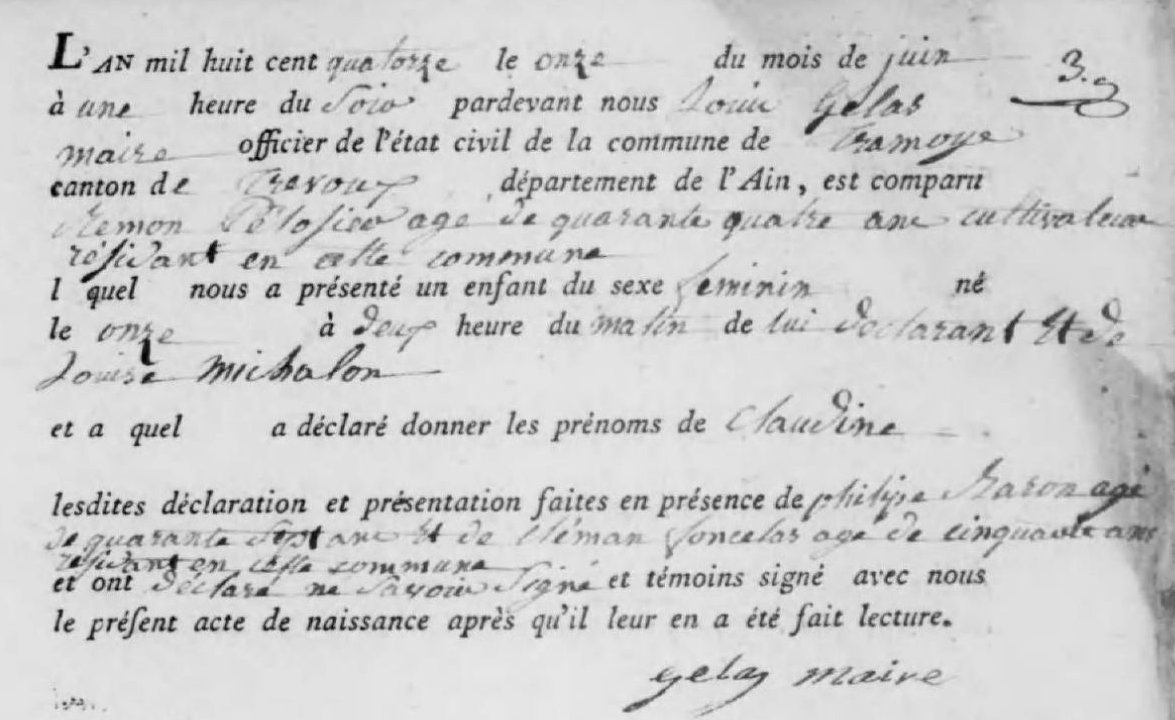 L'AN mil huit cent quatorze le onze du mois de juin
3.
à une heure du Soir pardevant nous Louis Gelas
maire officier de l'état civil de la commune de Tramoye
canton de Trevoux département de l'Ain, est comparu
age de quarante quatre ans cultivateur
résidant en cette commune
l quel nous a présenté un enfant du sexe feminin né
le onze à deux heure du matin de lui declarant Et de
Louise Michalon
et a quel a déclaré donner les prénoms de Claudine
lesdites déclaration et présentation faites en présence de philipe age
de quarante Sept ans Et de Cléman age de cinquante ans
residant en cette commune
et ont déclaré ne Savoir Signé et témoins signé avec nous
le préſent acte de naissance après qu'il leur en a été fait lecture.
gelas maire